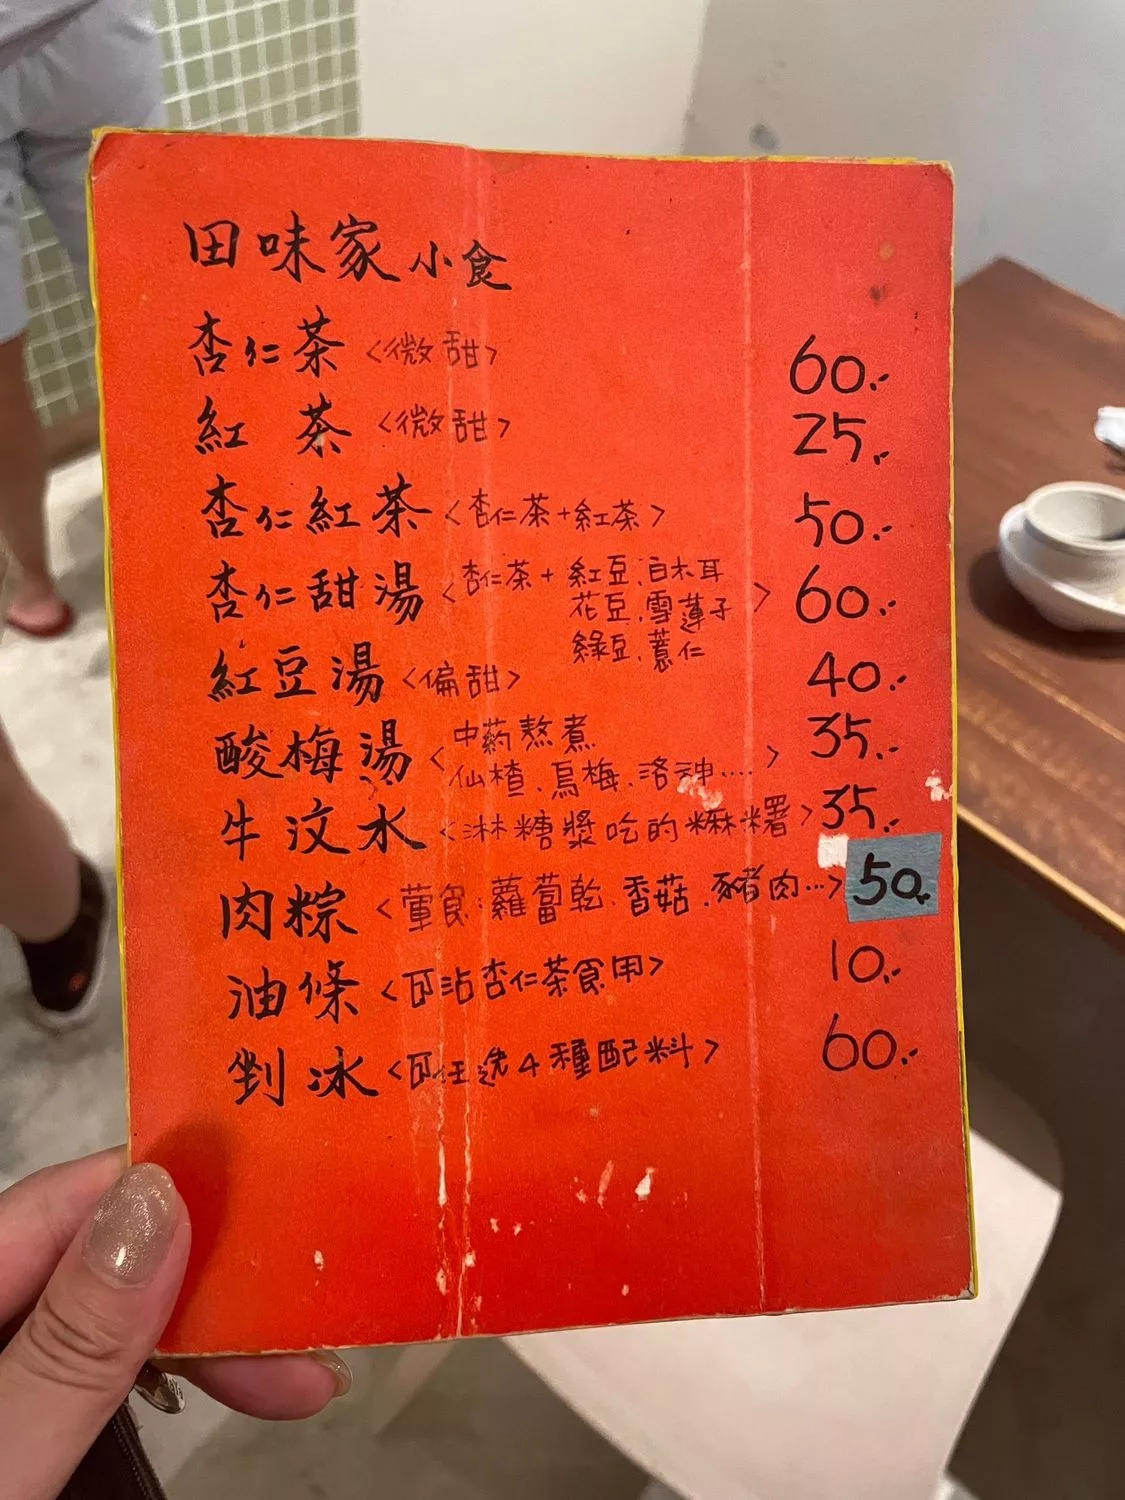 田味家小食
杏仁茶 <微甜> 60.-
紅茶 <微甜> 25.-
杏仁紅茶 <杏仁茶+紅茶> 50.-
杏仁甜湯 <杏仁茶+紅豆.白木耳
花豆.雪蓮子
綠豆.薏仁> 60.-
紅豆湯 <偏甜> 40.-
酸梅湯 <中药熬煮
仙楂.烏梅.洛神....> 35.-
牛汶水 <淋糖漿吃的麻糬> 35.-
肉粽 <葷食:蘿蔔乾.香菇.豬肉…> 50.-
油條 <可沾杏仁茶食用> 10.-
剉冰 <可任选4種配料> 60.-